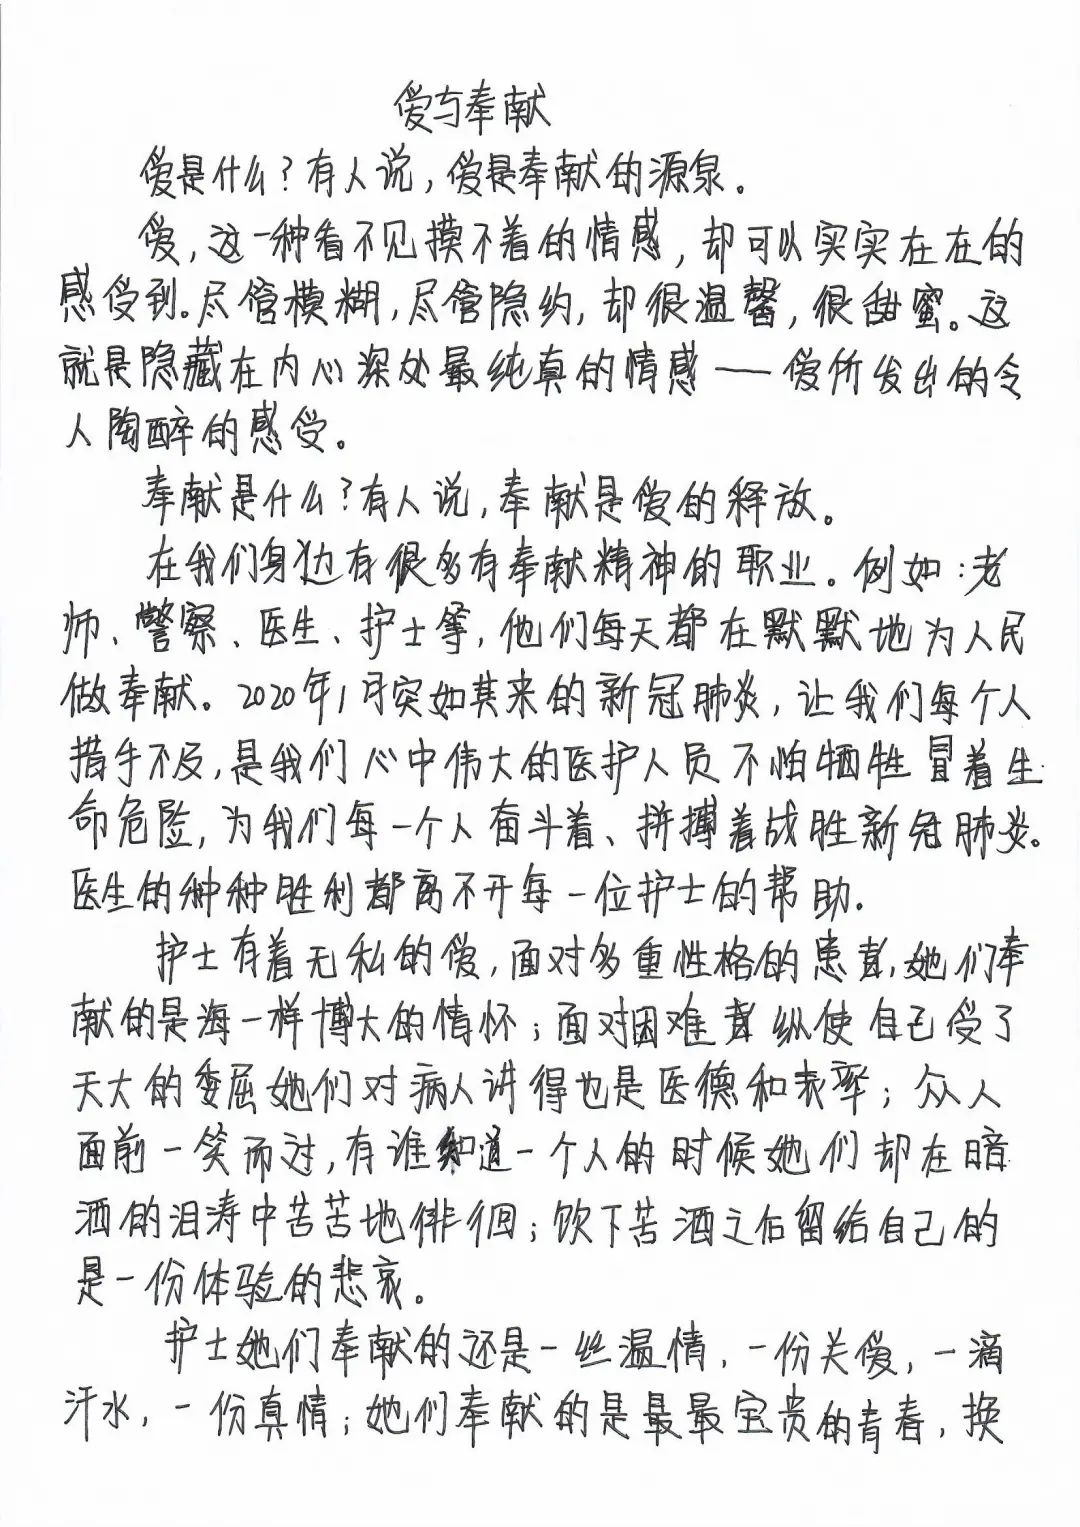 爱与奉献
爱是什么？有人说，爱是奉献的源泉。
爱，这一种看不见摸不着的情感，却可以实实在在的
感受到。尽管模糊，尽管隐约，却很温馨，很甜蜜。这
就是隐藏在内心深处最纯真的情感——爱所发出的令
人陶醉的感受。
奉献是什么？有人说，奉献是爱的释放。
在我们身边有很多有奉献精神的职业。例如：老
师、警察、医生、护士等，他们每天都在默默地为人民
做奉献。2020年1月突如其来的新冠肺炎，让我们每个人
措手不及，是我们心中伟大的医护人员不怕牺牲冒着生
命危险，为我们每一个人奋斗着、拼搏着战胜新冠肺炎。
医生的种种胜利都离不开每一位护士的帮助.
护士有着无私的爱，面对多重性格的患者，她们奉
献的是海一样博大的情怀；面对困难者纵使自己受了
天大的委屈她们对病人讲得也是医德和表率；众人
面前一笑而过，有谁知道一个人的时候她们却在暗
洒的泪涛中苦苦地徘徊；饮下苦酒之后留给自己的
是一份体验的悲哀。
护士她们奉献的还是一丝温情，一份关爱，一滴
汗水，一份真情；她们奉献的是最最宝贵的青春，换